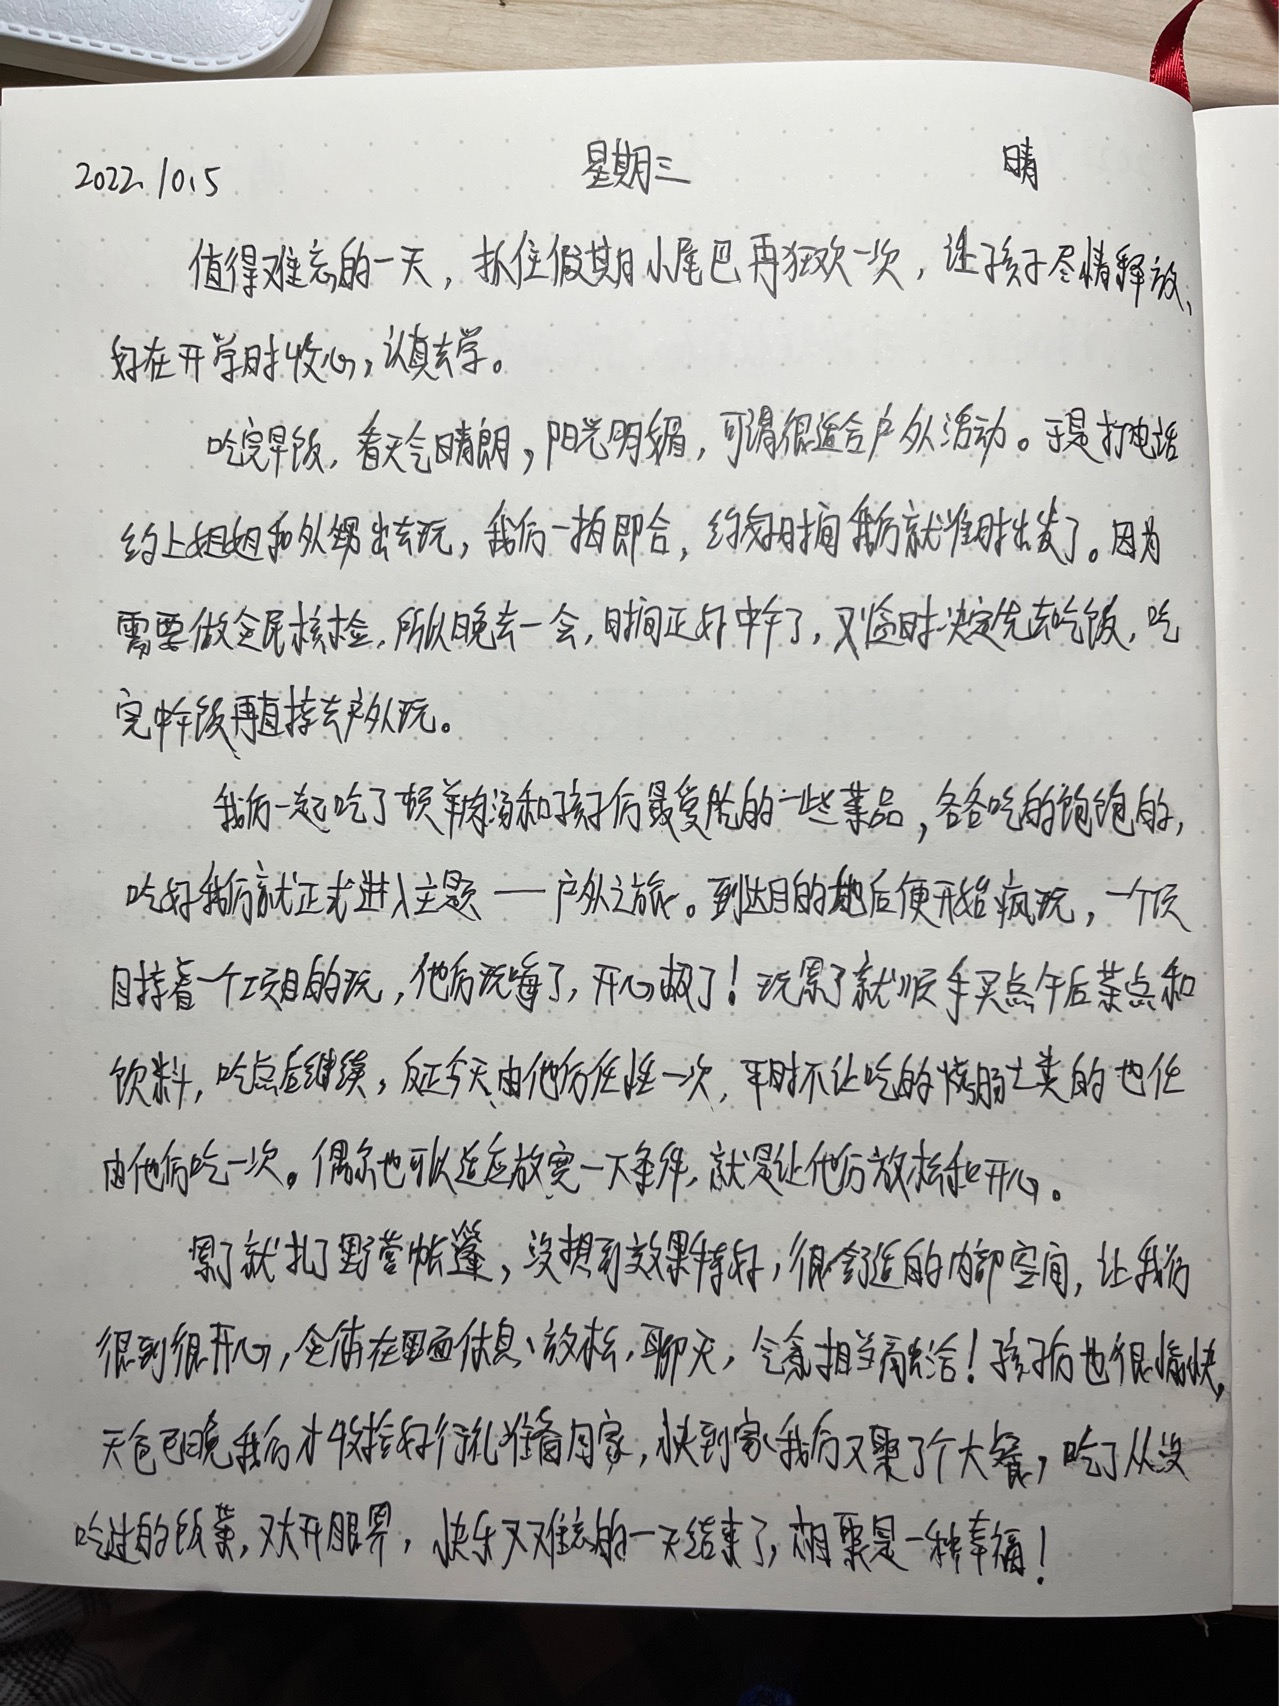 2022.10.5 星期三 晴
值得难忘的一天，抓住假期小尾巴再狂欢一次，让孩子尽情释放、
好在开学时收心，认真去学。
吃完早饭，看天气晴朗，阳光明媚，可谓很适合户外活动。于是打电话
约上姐姐和外甥出去玩，我们一拍即合，约好时间我们就准时出发了。因为
需要做全民核检，所以晚去一会，时间正好中午了，又临时决定先去吃饭，吃
完中午饭再直接去户外玩。
我们一起吃了顿羊肉汤和孩子们最爱吃的一些菜品，各各吃的饱饱的，
吃好我们就正式进入主题——户外之旅。到达目的地后便开始疯玩，一个项
目接着一个项目的玩，他们玩嗨了，开心极了！玩累了就顺手买点午后茶点和
饮料，吃点后继续，反正今天由他们任性一次，平时不让吃的烤肠之类的也任
由他们吃一次。偶尔也可以适应放宽一下条件，就是让他们放松和开心。
累了就扎了野营帐篷，没想到效果特好，很舒适的内部空间，让我们
很到很开心，全体在里面休息、放松，聊天，气氛相当融洽！孩子们也很愉快，
天色已晚我们才收拾好行礼准备回家，快到家我们又聚了个大餐，吃了从没
吃过的饭菜，又大开眼界，快乐又难忘的一天结束了，相聚是一种幸福！